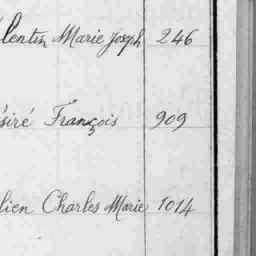 lentin Marie Joseph 246
ésiré François 909
lien Charles Marie 1014